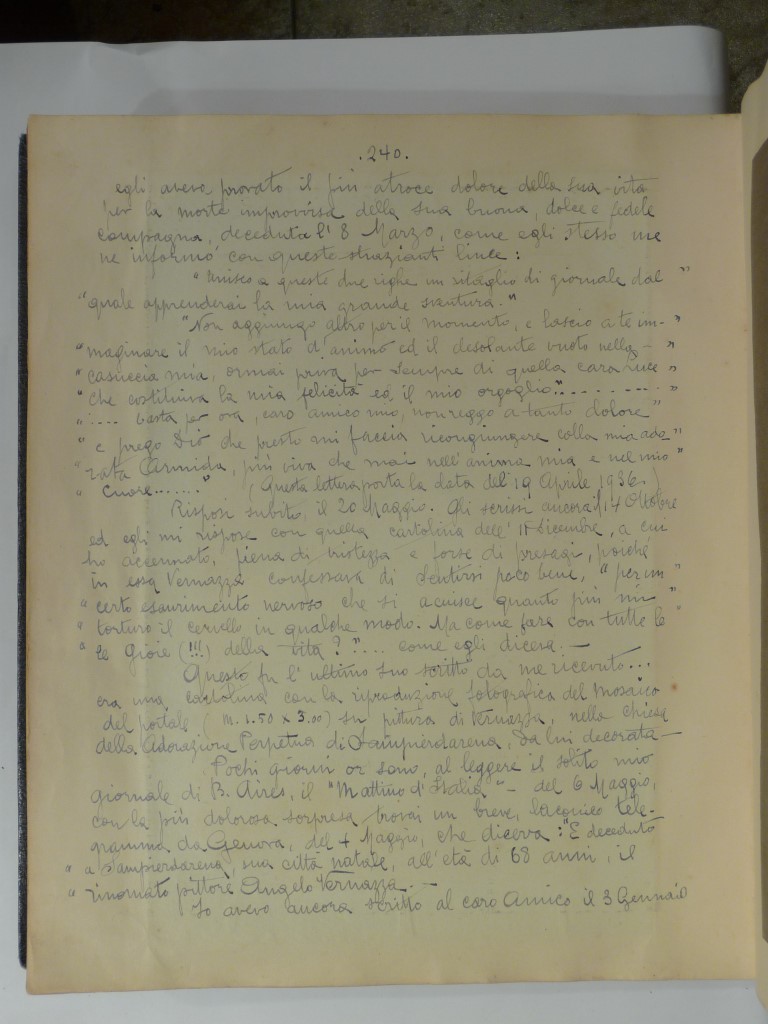 .240.
egli aveva provato il più atroce dolore della sua vita
per la morte improvvisa della sua buona, dolce e fedele
compagna, deceduta l'8 Marzo, come egli stesso me
ne informò con queste strazianti linee:
" Unisco a queste due righe un ritaglio di giornale dal "
"quale apprenderai la mia grande sventura."
"Non aggiungo altro per il momento, e lascio a te im- "
" maginare il mio stato d'animo ed il desolante vuoto nella - "
" casuccia mia, ormai priva per sempre di quella cara luce "
" che costituiva la mia felicità ed il mio orgoglio"......... "
" .... basta per ora, caro amico mio, non reggo a tanto dolore "
" e prego Dio che presto mi faccia ricongiungere colla mia ado "
" rata Armida, più viva che mai nell'anima mia e nel mio "
" cuore......." (Questa lettera porta la data del 19 Aprile 1936.)
Risposi subito, il 20 Maggio. Gli scrissi ancora il 17 Ottobre
ed egli mi rispose con quella cartolina dell' 11 Dicembre, a cui
ho accennato, piena di tristezza e forse di presagi, poichè
in essa Vernazza confessava di sentirsi poco bene, "per un "
" certo esaurimento nervoso che si acuisce quanto più mi "
" torturo il cervello in qualche modo. Ma come fare con tutte le "
" le gioie (!!!) della vita?".... come egli diceva. —
Questo fu l'ultimo suo scritto da me ricevuto...
era una cartolina con la riproduzione fotografica del mosaico
del portale (m. 1.50 x 3.00) su pittura di Vernazza, nella chiesa
della Adorazione Perpetua di Sampierdarena, da lui decorata —
Pochi giorni or sono, al leggere il solito mio
giornale di B. Aires, il "Mattino d'Italia" - del 6 Maggio,
con la più dolorosa sorpresa trovai un breve, laconico tele-
gramma da Genova, del 4 Maggio, che diceva: "È deceduto
" a Sampierdarena, sua città natale, all'età di 68 anni, il
" rinomato pittore Angelo Vernazza. —
Io avevo ancora scritto al caro Amico il 3 Gennaio